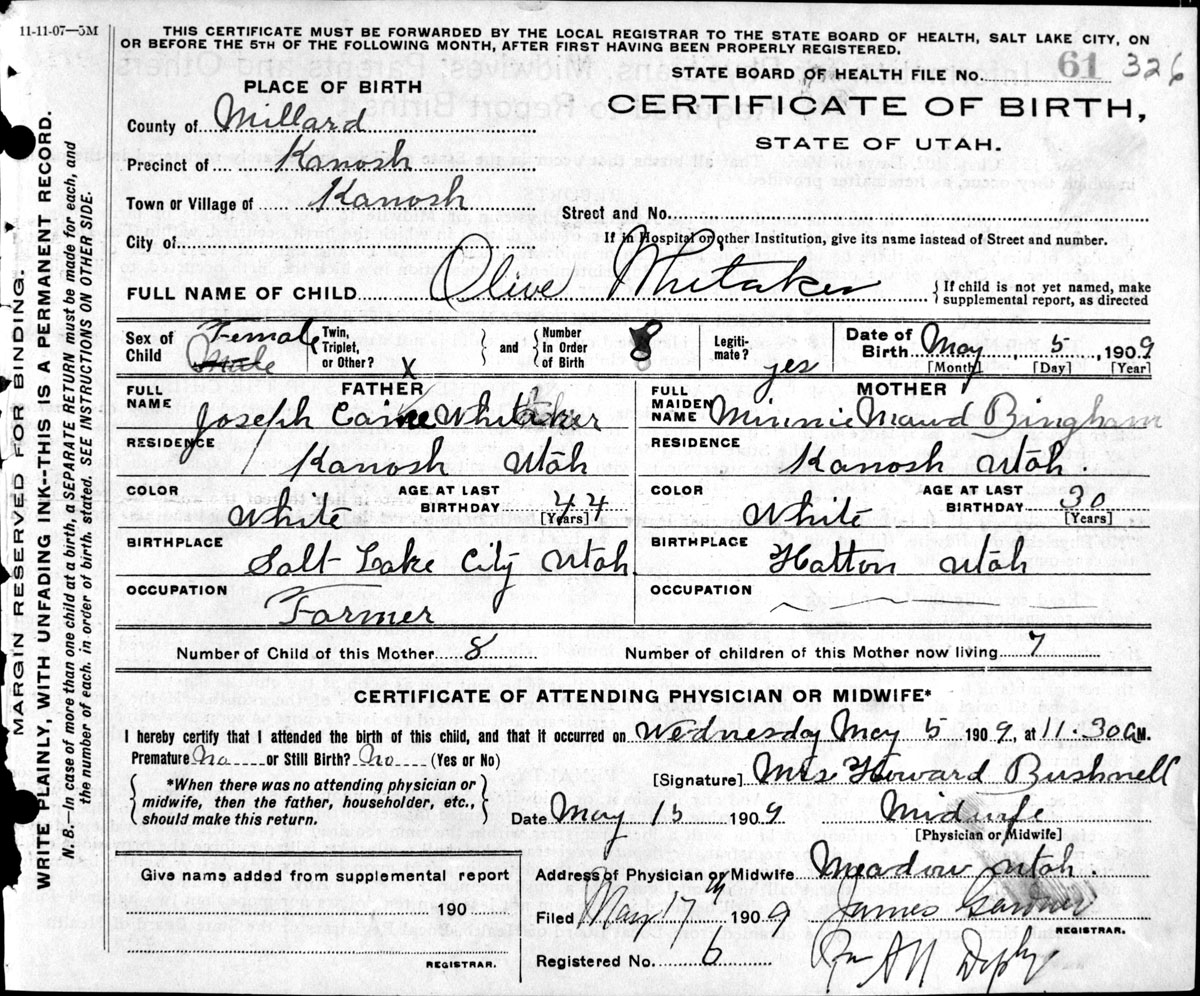 11-11-07—5M
THIS CERTIFICATE MUST BE FORWARDED BY THE LOCAL REGISTRAR TO THE STATE BOARD OF HEALTH, SALT LAKE CITY, ON
OR BEFORE THE 5TH OF THE FOLLOWING MONTH, AFTER FIRST HAVING BEEN PROPERLY REGISTERED.
STATE BOARD OF HEALTH FILE No. 61 326
PLACE OF BIRTH
CERTIFICATE OF BIRTH,
STATE OF UTAH.
County of Millard
Precinct of Kanosh
Town or Village of Kanosh
Street and No.
City of
If in Hospital or other Institution, give its name instead of Street and number.
FULL NAME OF CHILD Olive Whitaker
{If child is not yet named, make
supplemental report, as directed
Sex of Child Female Male
Twin, Triplet, or Other?
and
Number In Order of Birth 8
Legiti-mate? yes
Date of Birth May 5, 1909
[Month] [Day] [Year]
FATHER
FULL NAME Joseph Caine Whitaker
MOTHER
FULL MAIDEN NAME Minnie Maud Bingham
RESIDENCE Kanosh Utah
RESIDENCE Kanosh Utah.
COLOR White AGE AT LAST BIRTHDAY 44 [Years]
COLOR White AGE AT LAST BIRTHDAY 30 [Years]
BIRTHPLACE Salt Lake City Utah
BIRTHPLACE Hatton Utah
OCCUPATION Farmer
OCCUPATION
Number of Child of this Mother 8 Number of children of this Mother now living 7
CERTIFICATE OF ATTENDING PHYSICIAN OR MIDWIFE*
I hereby certify that I attended the birth of this child, and that it occurred on Wednesday May 5 1909, at 11.30 A.M.
Premature No or Still Birth? No (Yes or No)
[Signature] Mrs Howard Bushnell
{*When there was no attending physician or
midwife, then the father, householder, etc.,
should make this return.}
Date May 15 1909 Midwife
[Physician or Midwife]
Give name added from supplemental report
190
REGISTRAR.
Address of Physician or Midwife Meadow Utah.
Filed May 17th 1909 James Gardner
REGISTRAR.
Registered No. 6
MARGIN RESERVED FOR BINDING.
WRITE PLAINLY, WITH UNFADING INK--THIS IS A PERMANENT RECORD.
N. B.—In case of more than one child at a birth, a SEPARATE RETURN must be made for each, and
the number of each. in order of birth. stated. SEE INSTRUCTIONS ON OTHER SIDE-